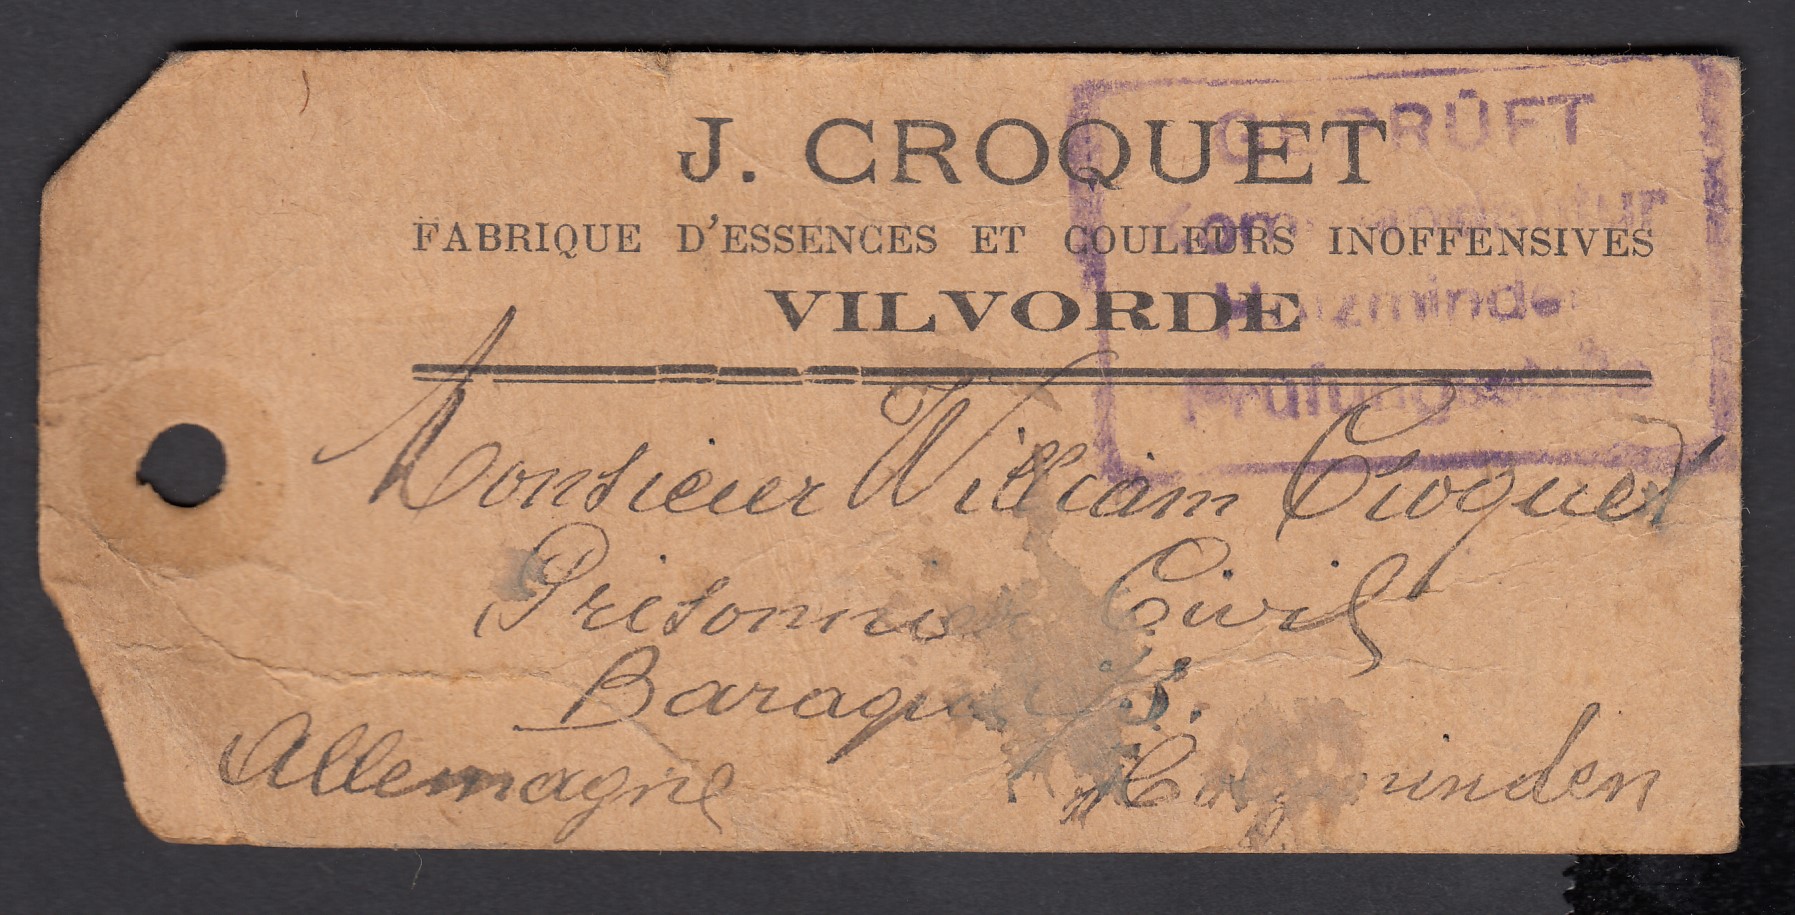 J. CROQUET
FABRIQUE D'ESSENCES ET COULEURS INOFFENSIVES
VILVORDE
GEPRÜFT
Kommandantur
Holzminden
Prüfungsstelle
Monsieur William Croquet
Prisonnier Civil
Baraque
Allemagne Holzminden